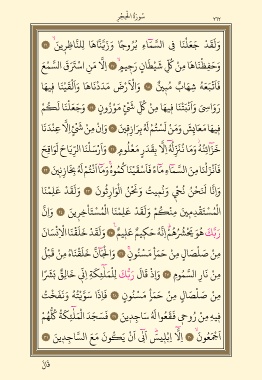 سُورَةُ الْحِجْرِ
٢٦٢
وَلَقَدْ جَعَلْنَا فِى السَّمَٓاءِ بُرُوجًا وَزَيَّنَّاهَا لِلنَّاظِرِينَ ﴿١٦﴾
وَحَفِظْنَاهَا مِنْ كُلِّ شَيْطَانٍ رَجِيمٍ ﴿١٧﴾ اِلَّا مَنِ اسْتَرَقَ السَّمْعَ
فَاَتْبَعَهُ شِهَابٌ مُبِينٌ ﴿١٨﴾ وَالْاَرْضَ مَدَدْنَاهَا وَاَلْقَيْنَا فِيهَا
رَوَاسِىَ وَاَنْبَتْنَا فِيهَا مِنْ كُلِّ شَىْءٍ مَوْزُونٍ ﴿١٩﴾ وَجَعَلْنَا لَكُمْ
فِيهَا مَعَايِشَ وَمَنْ لَسْتُمْ لَهُ بِرَازِقِينَ ﴿٢٠﴾ وَاِنْ مِنْ شَىْءٍ اِلَّا عِنْدَنَا
خَزَٓائِنُهُ وَمَا نُنَزِّلُهُٓ اِلَّا بِقَدَرٍ مَعْلُومٍ ﴿٢١﴾ وَاَرْسَلْنَا الرِّيَاحَ لَوَاقِحَ
فَاَنْزَلْنَا مِنَ السَّمَٓاءِ مَٓاءً فَاَسْقَيْنَاكُمُوهُ وَمَٓا اَنْتُمْ لَهُ بِخَازِنِينَ ﴿٢٢﴾
وَاِنَّا لَنَحْنُ نُحْيِى وَنُمِيتُ وَنَحْنُ الْوَارِثُونَ ﴿٢٣﴾ وَلَقَدْ عَلِمْنَا
الْمُسْتَقْدِمِينَ مِنْكُمْ وَلَقَدْ عَلِمْنَا الْمُسْتَاْخِرِينَ ﴿٢٤﴾ وَاِنَّ
رَبَّكَ هُوَ يَحْشُرُهُمْ اِنَّهُ حَكِيمٌ عَلِيمٌ ﴿٢٥﴾ وَلَقَدْ خَلَقْنَا الْاِنْسَانَ
مِنْ صَلْصَالٍ مِنْ حَمَاٍ مَسْنُونٍ ﴿٢٦﴾ وَالْجَٓانَّ خَلَقْنَاهُ مِنْ قَبْلُ
مِنْ نَارِ السَّمُومِ ﴿٢٧﴾ وَاِذْ قَالَ رَبُّكَ لِلْمَلٰٓئِكَةِ اِنِّى خَالِقٌ بَشَرًا
مِنْ صَلْصَالٍ مِنْ حَمَاٍ مَسْنُونٍ ﴿٢٨﴾ فَاِذَا سَوَّيْتُهُ وَنَفَخْتُ
فِيهِ مِنْ رُوحِى فَقَعُوا لَهُ سَاجِدِينَ ﴿٢٩﴾ فَسَجَدَ الْمَلٰٓئِكَةُ كُلُّهُمْ
اَجْمَعُونَ ﴿٣٠﴾ اِلَّٓا اِبْلِيسَ اَبٰٓى اَنْ يَكُونَ مَعَ السَّاجِدِينَ ﴿٣١﴾
قَالَ